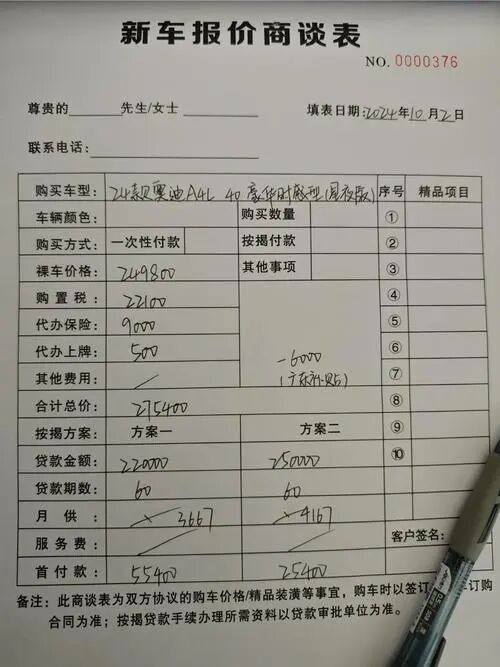 新车报价商谈表
NO. 0000376
尊贵的______先生/女士 填表日期:2024年10月2日
联系电话:
购买车型: 24款奥迪A4L 40 豪华时尚型(星夜版) 序号 精品项目
车辆颜色: 购买数量 ①
购买方式: 一次性付款 按揭付款 ②
裸车价格: 249800 其他事项 ③
购置税: 22100 ④
代办保险: 9000 ⑤
代办上牌: 500 -6000 ⑥
其他费用: / (广东补贴) ⑦
合计总价: 275400 ⑧
按揭方案: 方案一 方案二 ⑨
贷款金额: 220000 250000 ⑩
贷款期数: 60 60
月供: × 3667 × 4167
服务费: / / 客户签名:
首付款: 55400 25400
备注:此商谈表为双方协议的购车价格/精品装潢等事宜,购车时以签订 车订购
合同为准;按揭贷款手续办理所需资料以贷款审批单位为准。